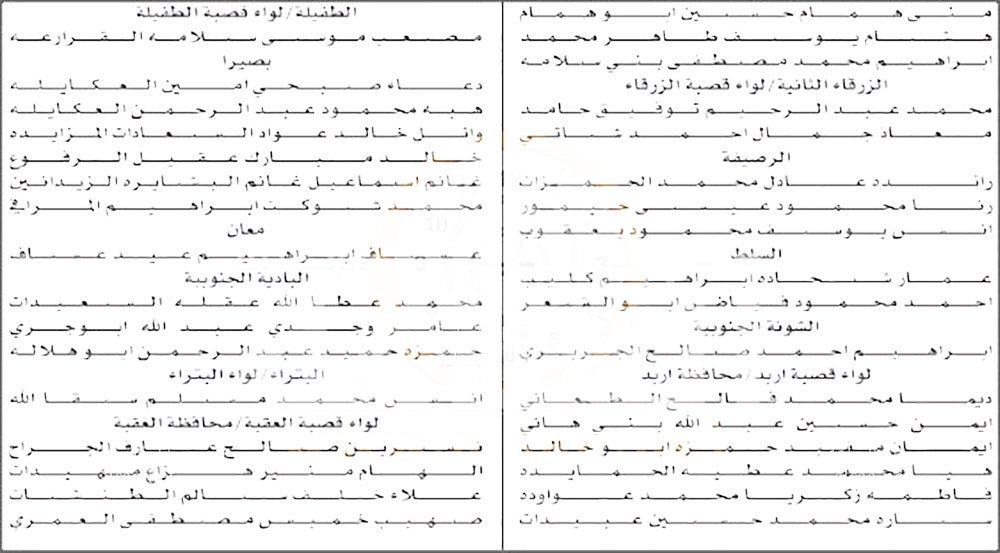 منى همام حسين ابو همام
هشام يوسف طاهر محمد
ابراهيم محمد مصطفى بني سلامه
الزرقاء الثانية/لواء قصبة الزرقاء
محمد عبد الرحيم توفيق حامد
معاذ جمال احمد شناتي
الرصيفة
رائده عادل محمد الحمزات
رنا محمود عيسى حيمور
انس يوسف محمود يعقوب
السلط
عمار شحاده ابراهيم كليب
احمد محمود فياض ابو الشعر
الشونة الجنوبية
ابراهيم احمد صالح الجريري
لواء قصبة اربد/محافظة اربد
ديما محمد فالح الطعاني
ايمن حسين عبد الله بني هاني
ايمان مسيد حمزه ابو خالد
هيا محمد عطيه الحمايده
فاطمه زكريا محمد عواوده
ساره محمد حسين عبيدات
الطفيلة/لواء قصبة الطفيلة
مصعب موسى سلامه القرارعه
بصيرا
دعاء صبحي امين العكايله
هبه محمود عبد الرحمن العكايله
وائل خالد عواد السعادات المزايده
خالد مبارك عقيل الرفوع
غانم اسماعيل غانم البشابره الزيدانين
محمد شوكت ابراهيم المرافي
معان
عساف ابراهيم عيد عساف
البادية الجنوبية
محمد عطا الله عقله السعيدات
عامر وجدي عبد الله ابوجري
حمزه حميد عبد الرحمن ابو هلاله
البتراء/لواء البتراء
انس محمد مسلم سقا الله
لواء قصبة العقبة/محافظة العقبة
نسرين صالح عارف الجراح
الهام منير هزاع مهيدات
علاء خلف سالم الطننات
صهيب خميس مصطفى العمري